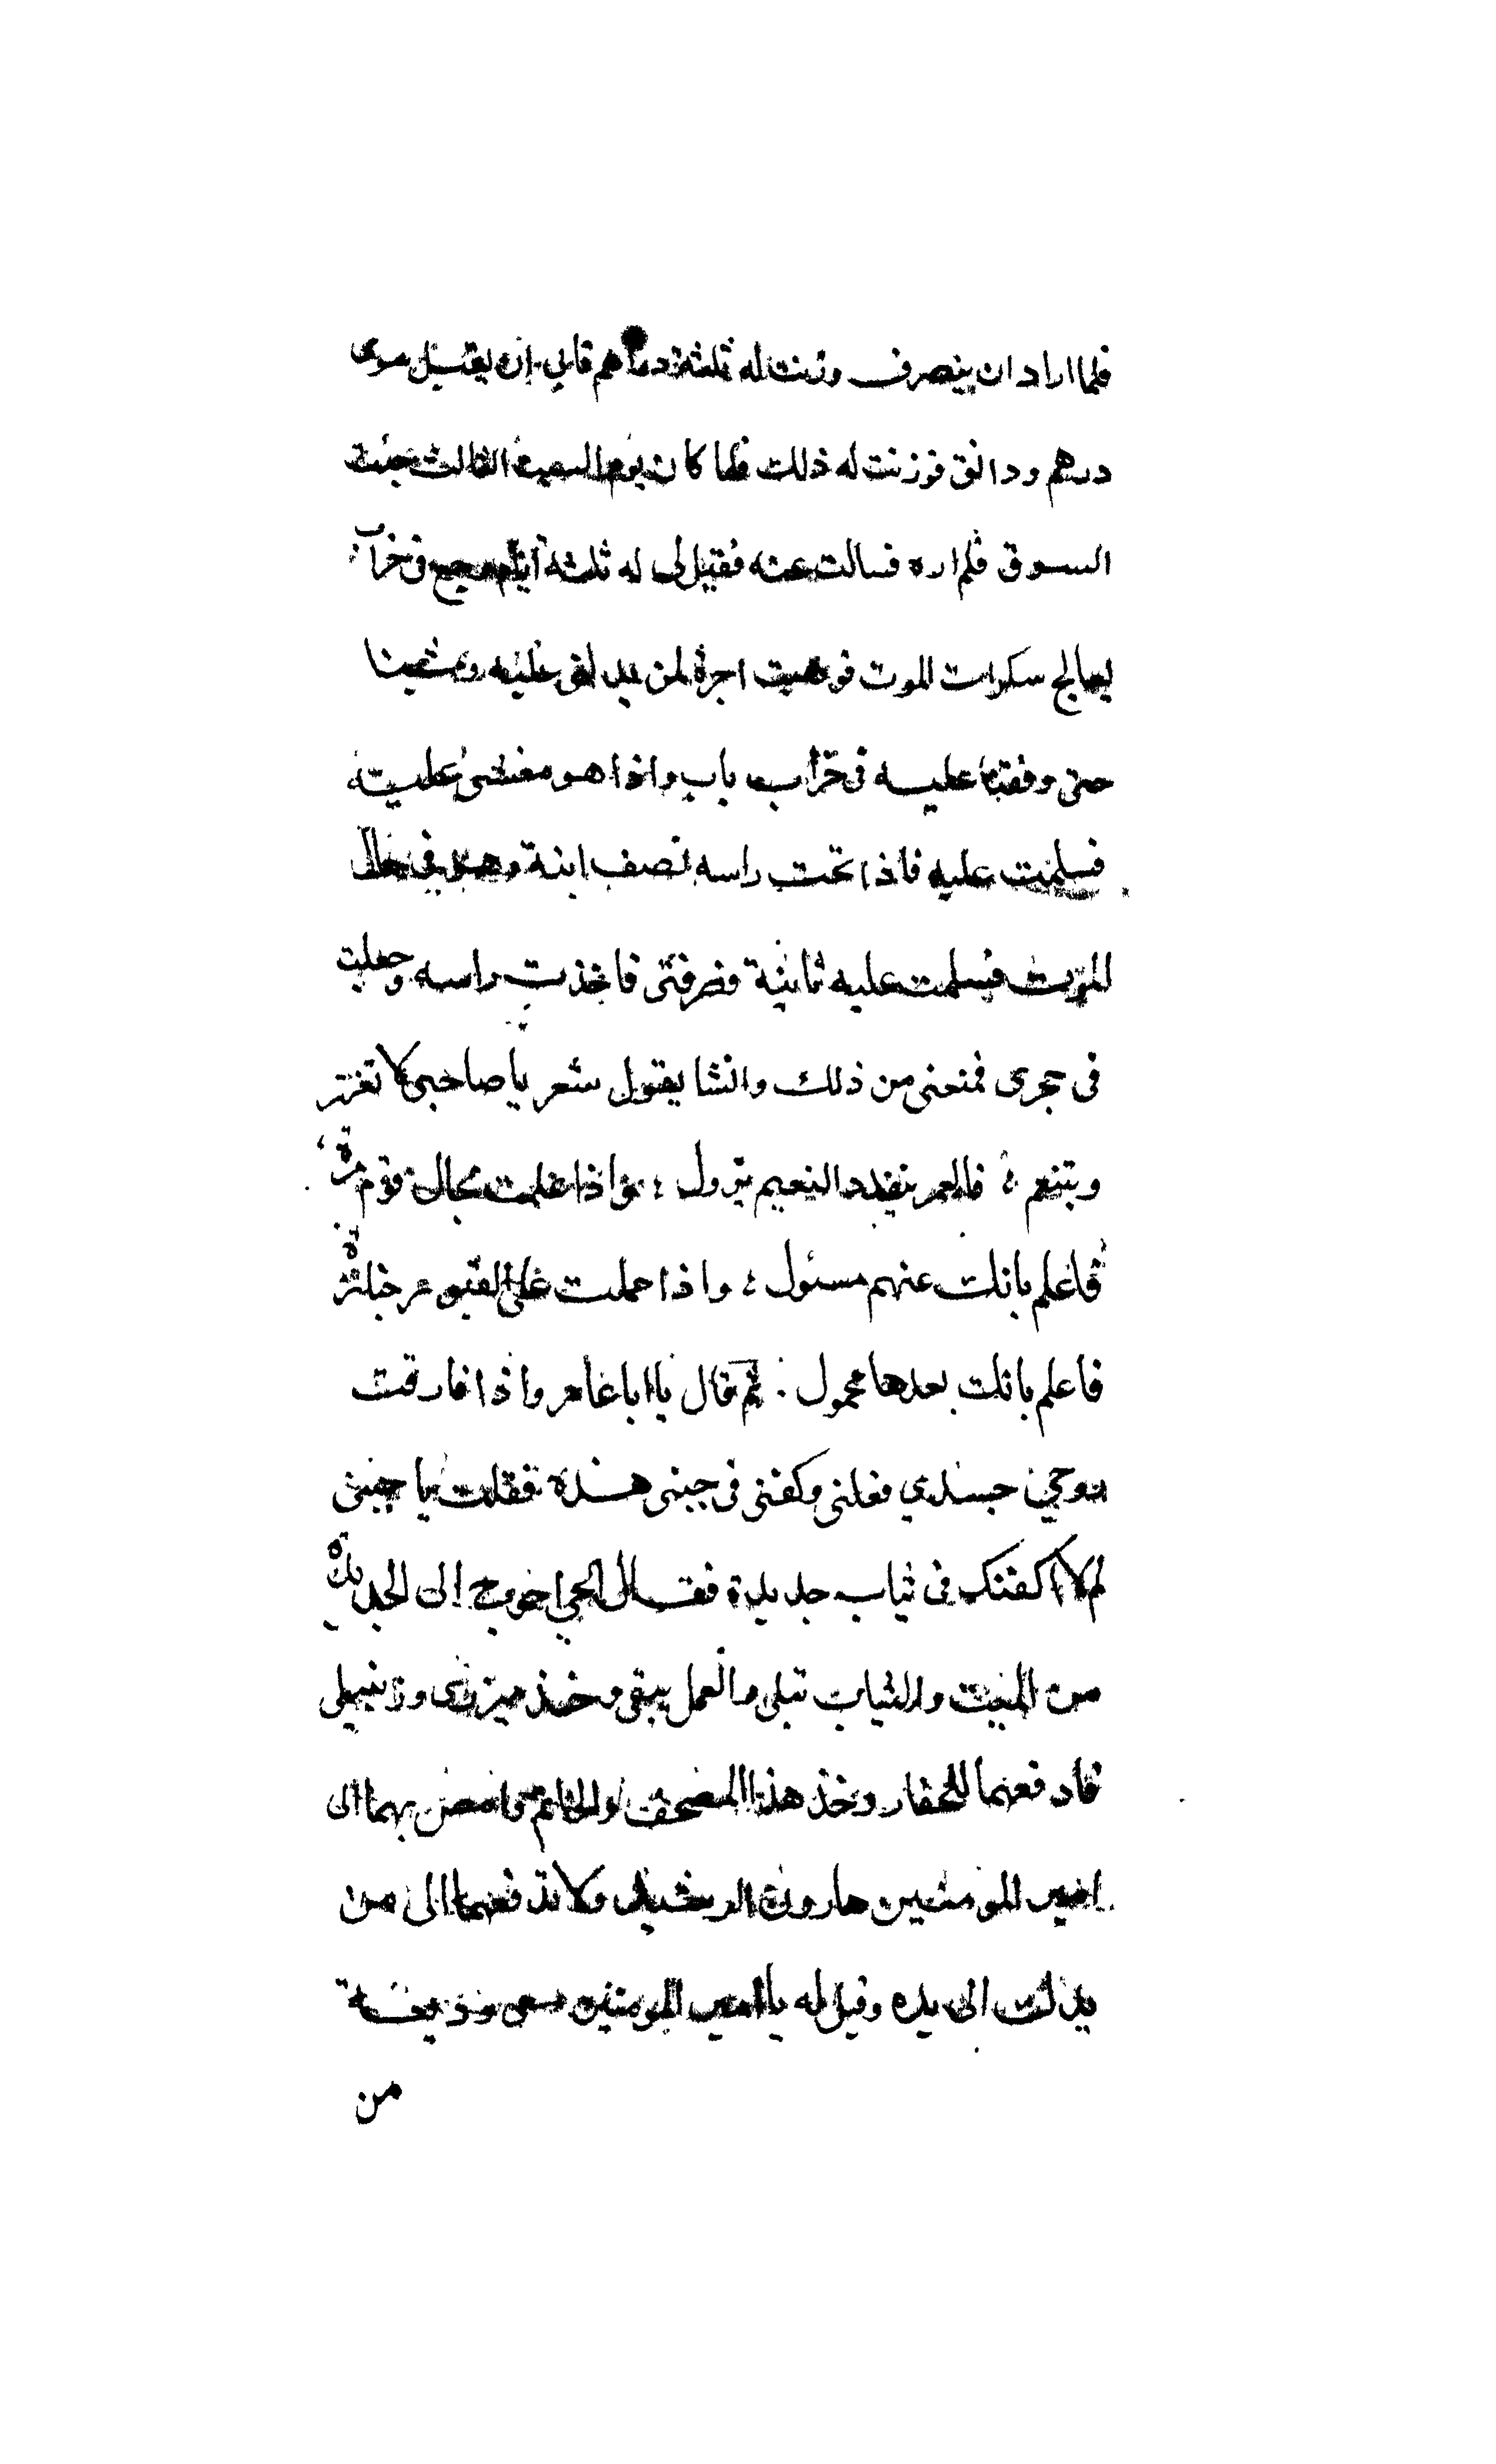 فلما اراد ان ينصرف وزنت له ثلثة دراهم فابى ان يقبل سوى
درهم ودانق فوزنت له ذلك فلما كان يوم السبت الثالث جئت
السوق فلم اره فسالت عنه فقيل لى له ثلثة ايام وجيع فى خراب
يعالج سكرات الموت فوهبت اجرة لمن يدلنى عليه ومشينا
حتى وقفنا عليه فى خراب باب واذا هو مغشى عليه
فسلمت عليه فاذا تحت راسه نصف لبنة وهو فى حال
الموت فسلمت عليه ثانية فعرفنى فاخذت راسه وجعلت
فى حجرى فمنعنى من ذلك وانشا يقول شعر يا صاحبى لا تغترر
وبتنعم فالعمر ينفد والنعيم يزول واذا علمت بحال قوم مرة
فاعلم بانك عنهم مسئول واذا حملت على القبور جنازة
فاعلم بانك بعدها محمول ثم قال يا ابا عامر واذا فارقت
روحى جسدي فغلنى وكفنى فى جبتى هذه فقلت يا حبيبى
لم لا اكفنك فى ثياب جديدة فقال الحى احوج الى الجديدة
من الميت والثياب تبلى والعمل يبقى وخذ ميزرى وزنبيلى
فادفعهما للحفار وخذ هذا المصحف والخاتم وامض بهما الى
امير المومنين هارون الرشيد ولا تدفعهما الى من
يدك الى يده وقيل له يا امير المومنين معى وديعة
من